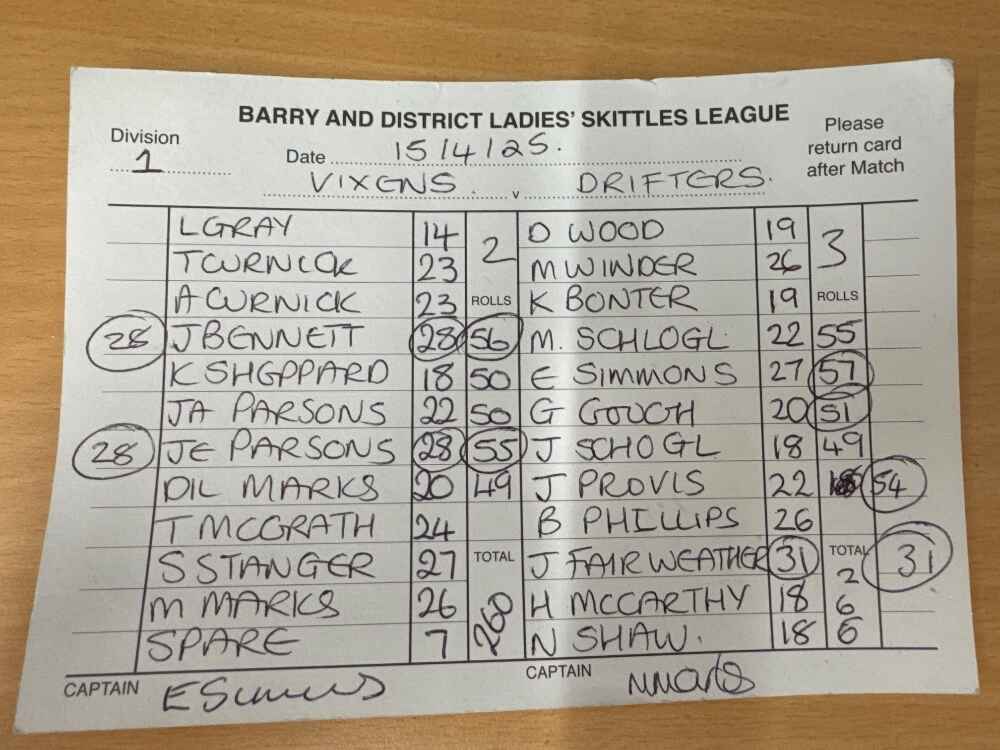 BARRY AND DISTRICT LADIES' SKITTLES LEAGUE
Division 1
Date 15/4/25.
Please
return card
after Match
VIXENS v DRIFTERS.
L GRAY 14 2 D WOOD 19 3
T CURNICK 23 M WINDER 26
A CURNICK 23 ROLLS K BONTER 19 ROLLS
28 J BENNETT 28 56 M. SCHLOGL 22 55
K SHEPPARD 18 50 E SIMMONS 27 57
JA PARSONS 22 50 G GOUGH 20 51
28 JE PARSONS 28 55 J SCHOGL 18 49
DIL MARKS 20 49 J PROVIS 22 54
T MCGRATH 24 B PHILLIPS 26
S STANGER 27 TOTAL J FAIRWEATHER 31 TOTAL 31
M MARKS 26 260 H MCCARTHY 18 266
SPARE 7 N SHAW. 18
CAPTAIN E Simmons CAPTAIN